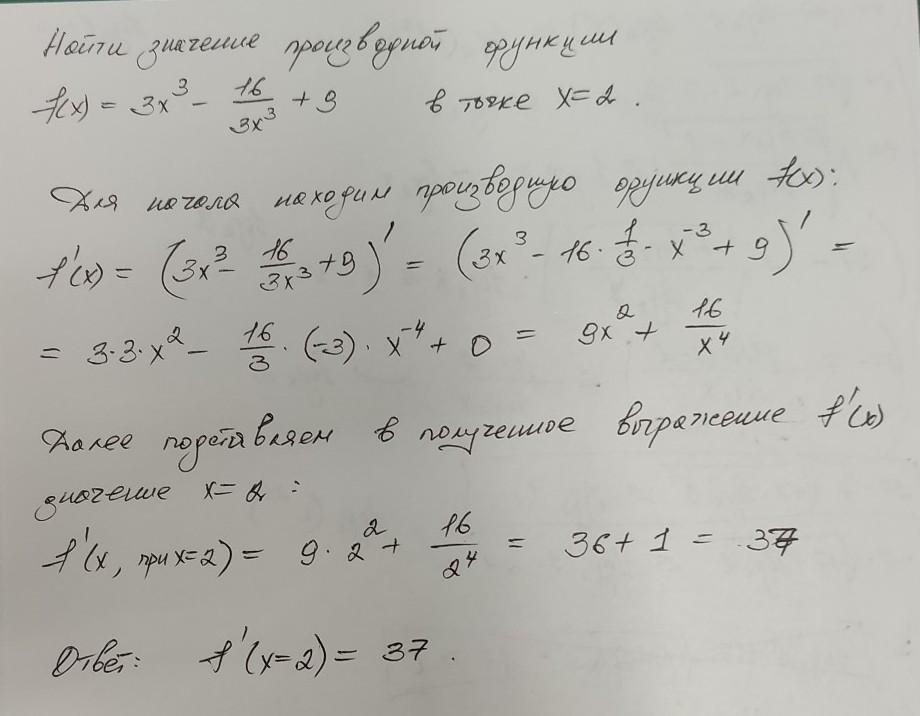 Найти значение производной функции
f(x) = 3x³ - 16/3x³ + 9 в точке x=2.
Для начала находим производную функции f(x):
f'(x) = (3x³ - 16/3x³ + 9)' = (3x³ - 16 · 1/3 · x⁻³ + 9)' =
= 3·3·x² - 16/3 · (-3) · x⁻⁴ + 0 = 9x² + 16/x⁴
Далее подставляем в полученное выражение f'(x)
значение x=2 :
f'(x, при x=2) = 9 · 2² + 16/2⁴ = 36 + 1 = 37
Ответ: f'(x=2) = 37 .